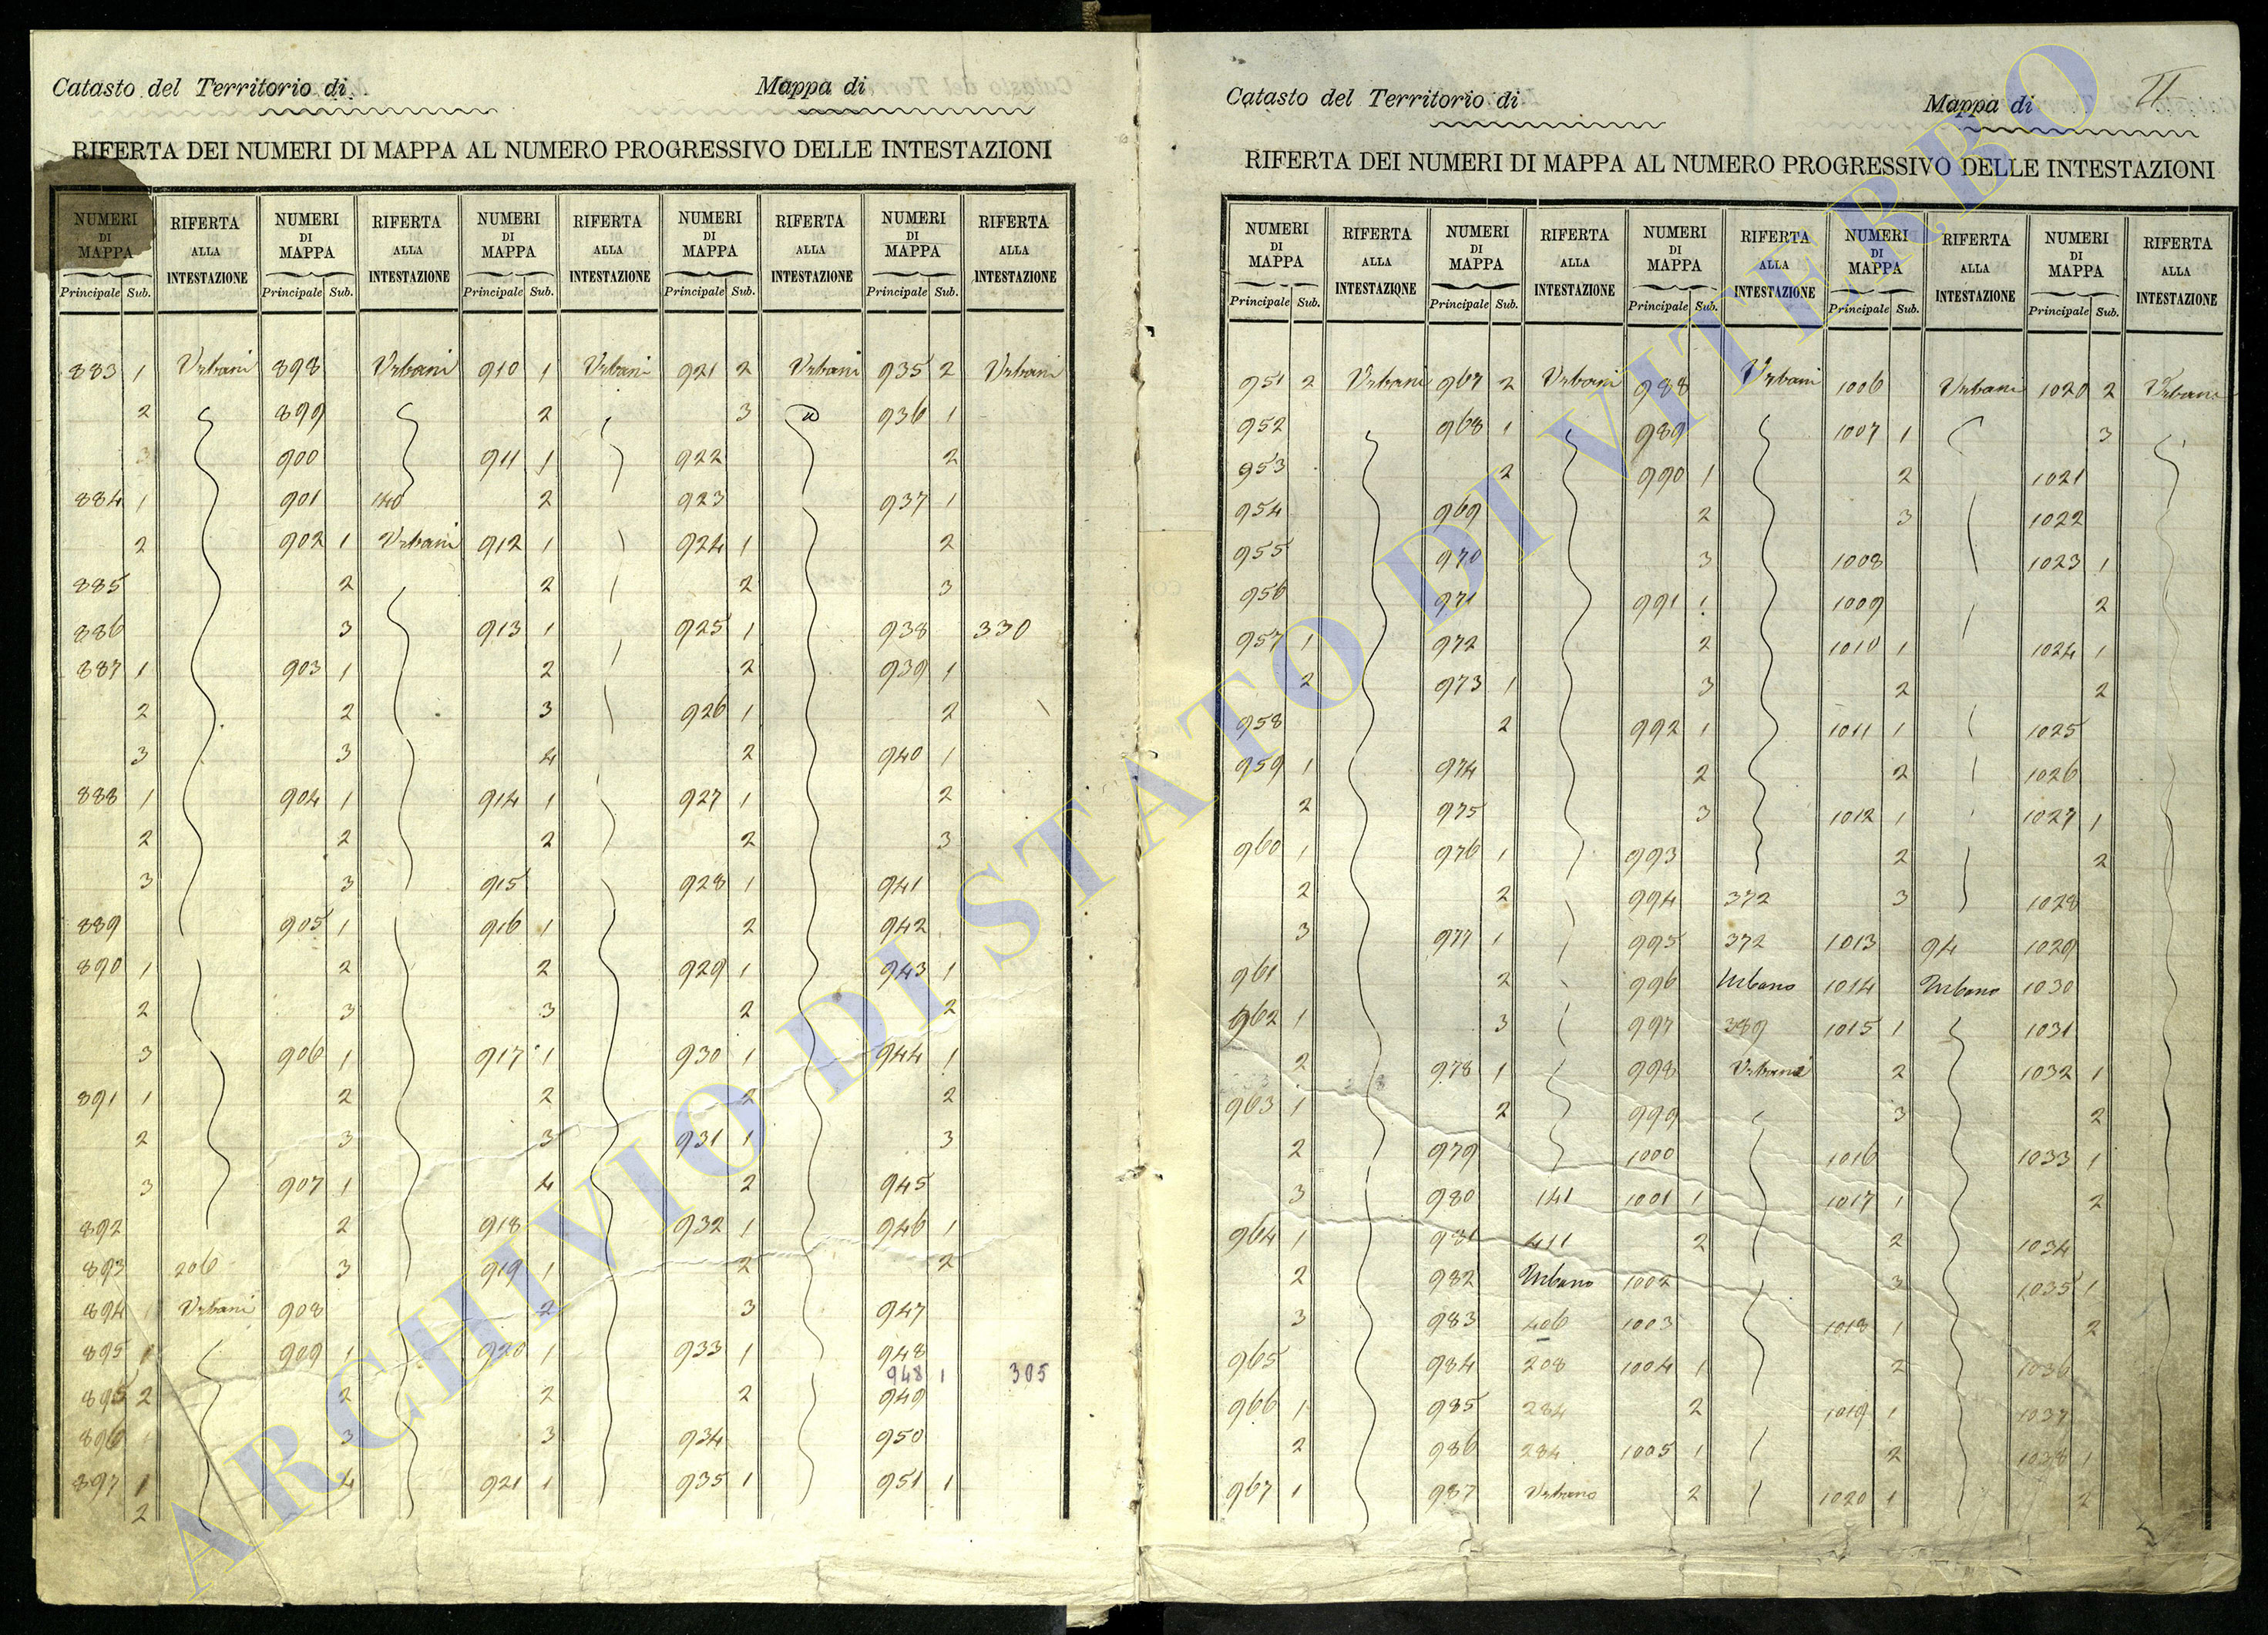 Catasto del Territorio di Mappa di
RIFERTA DEI NUMERI DI MAPPA AL NUMERO PROGRESSIVO DELLE INTESTAZIONI
NUMERI DI MAPPA RIFERTA ALLA INTESTAZIONE NUMERI DI MAPPA RIFERTA ALLA INTESTAZIONE NUMERI DI MAPPA RIFERTA ALLA INTESTAZIONE NUMERI DI MAPPA RIFERTA ALLA INTESTAZIONE NUMERI DI MAPPA RIFERTA ALLA INTESTAZIONE
Principale Sub. Principale Sub. Principale Sub. Principale Sub. Principale Sub.
883 1 Urbani 898 Urbani 910 1 Urbani 921 2 Urbani 935 2 Urbani
2 899 2 3 936 1
3 900 911 1 922 2
884 1 901 140 2 923 937 1
2 902 1 Urbani 912 1 924 1 2
885 2 2 2 3
886 3 913 1 925 1 938 330
887 1 903 1 2 2 939 1
2 2 3 926 1 2
3 3 4 2 940 1
888 1 904 1 914 1 927 1 2
2 2 2 2 3
3 3 915 928 1 941
889 905 1 916 1 2 942
890 1 2 2 929 1 943 1
2 3 3 2 2
3 906 1 917 1 930 1 944 1
891 1 2 2 2 2
2 3 3 931 1 3
3 907 1 4 2 945
892 2 918 932 1 946 1
893 206 3 919 1 2 2
894 1 Urbani 908 2 3 947
895 1 909 1 920 1 933 1 948
948 1 305
895 2 2 2 2 949
896 1 3 3 934 950
897 1 4 921 1 935 1 951 1
2
Catasto del Territorio di Mappa di II
RIFERTA DEI NUMERI DI MAPPA AL NUMERO PROGRESSIVO DELLE INTESTAZIONI
NUMERI DI MAPPA RIFERTA ALLA INTESTAZIONE NUMERI DI MAPPA RIFERTA ALLA INTESTAZIONE NUMERI DI MAPPA RIFERTA ALLA INTESTAZIONE NUMERI DI MAPPA RIFERTA ALLA INTESTAZIONE NUMERI DI MAPPA RIFERTA ALLA INTESTAZIONE
Principale Sub. Principale Sub. Principale Sub. Principale Sub. Principale Sub.
951 2 Urbani 967 2 Urbani 988 Urbani 1006 Urbani 1020 2 Urbani
952 968 1 989 1007 1 3
953 2 990 1 2 1021
954 969 2 3 1022
955 970 3 1008 1023 1
956 971 991 1 1009 2
957 1 972 2 1010 1 1024 1
2 973 1 3 2 2
958 2 992 1 1011 1 1025
959 1 974 2 2 1026
2 975 3 1012 1 1027 1
960 1 976 1 993 2 2
2 2 994 372 3 1028
3 977 1 995 372 1013 94 1029
961 2 996 Urbano 1014 Urbano 1030
962 1 3 997 389 1015 1 1031
2 978 1 998 Urbani 2 1032 1
963 1 2 999 3 2
2 979 1000 1016 1033 1
3 980 141 1001 1 1017 1 2
964 1 981 411 2 2 1034
2 982 Urbano 1002 3 1035 1
3 983 406 1003 1018 1 2
965 984 208 1004 1 2 1036
966 1 985 284 2 1019 1 1037
2 986 284 1005 1 2 1038 1
967 1 987 Urbano 2 1020 1 2
ARCHIVIO DI STATO DI VITERBO